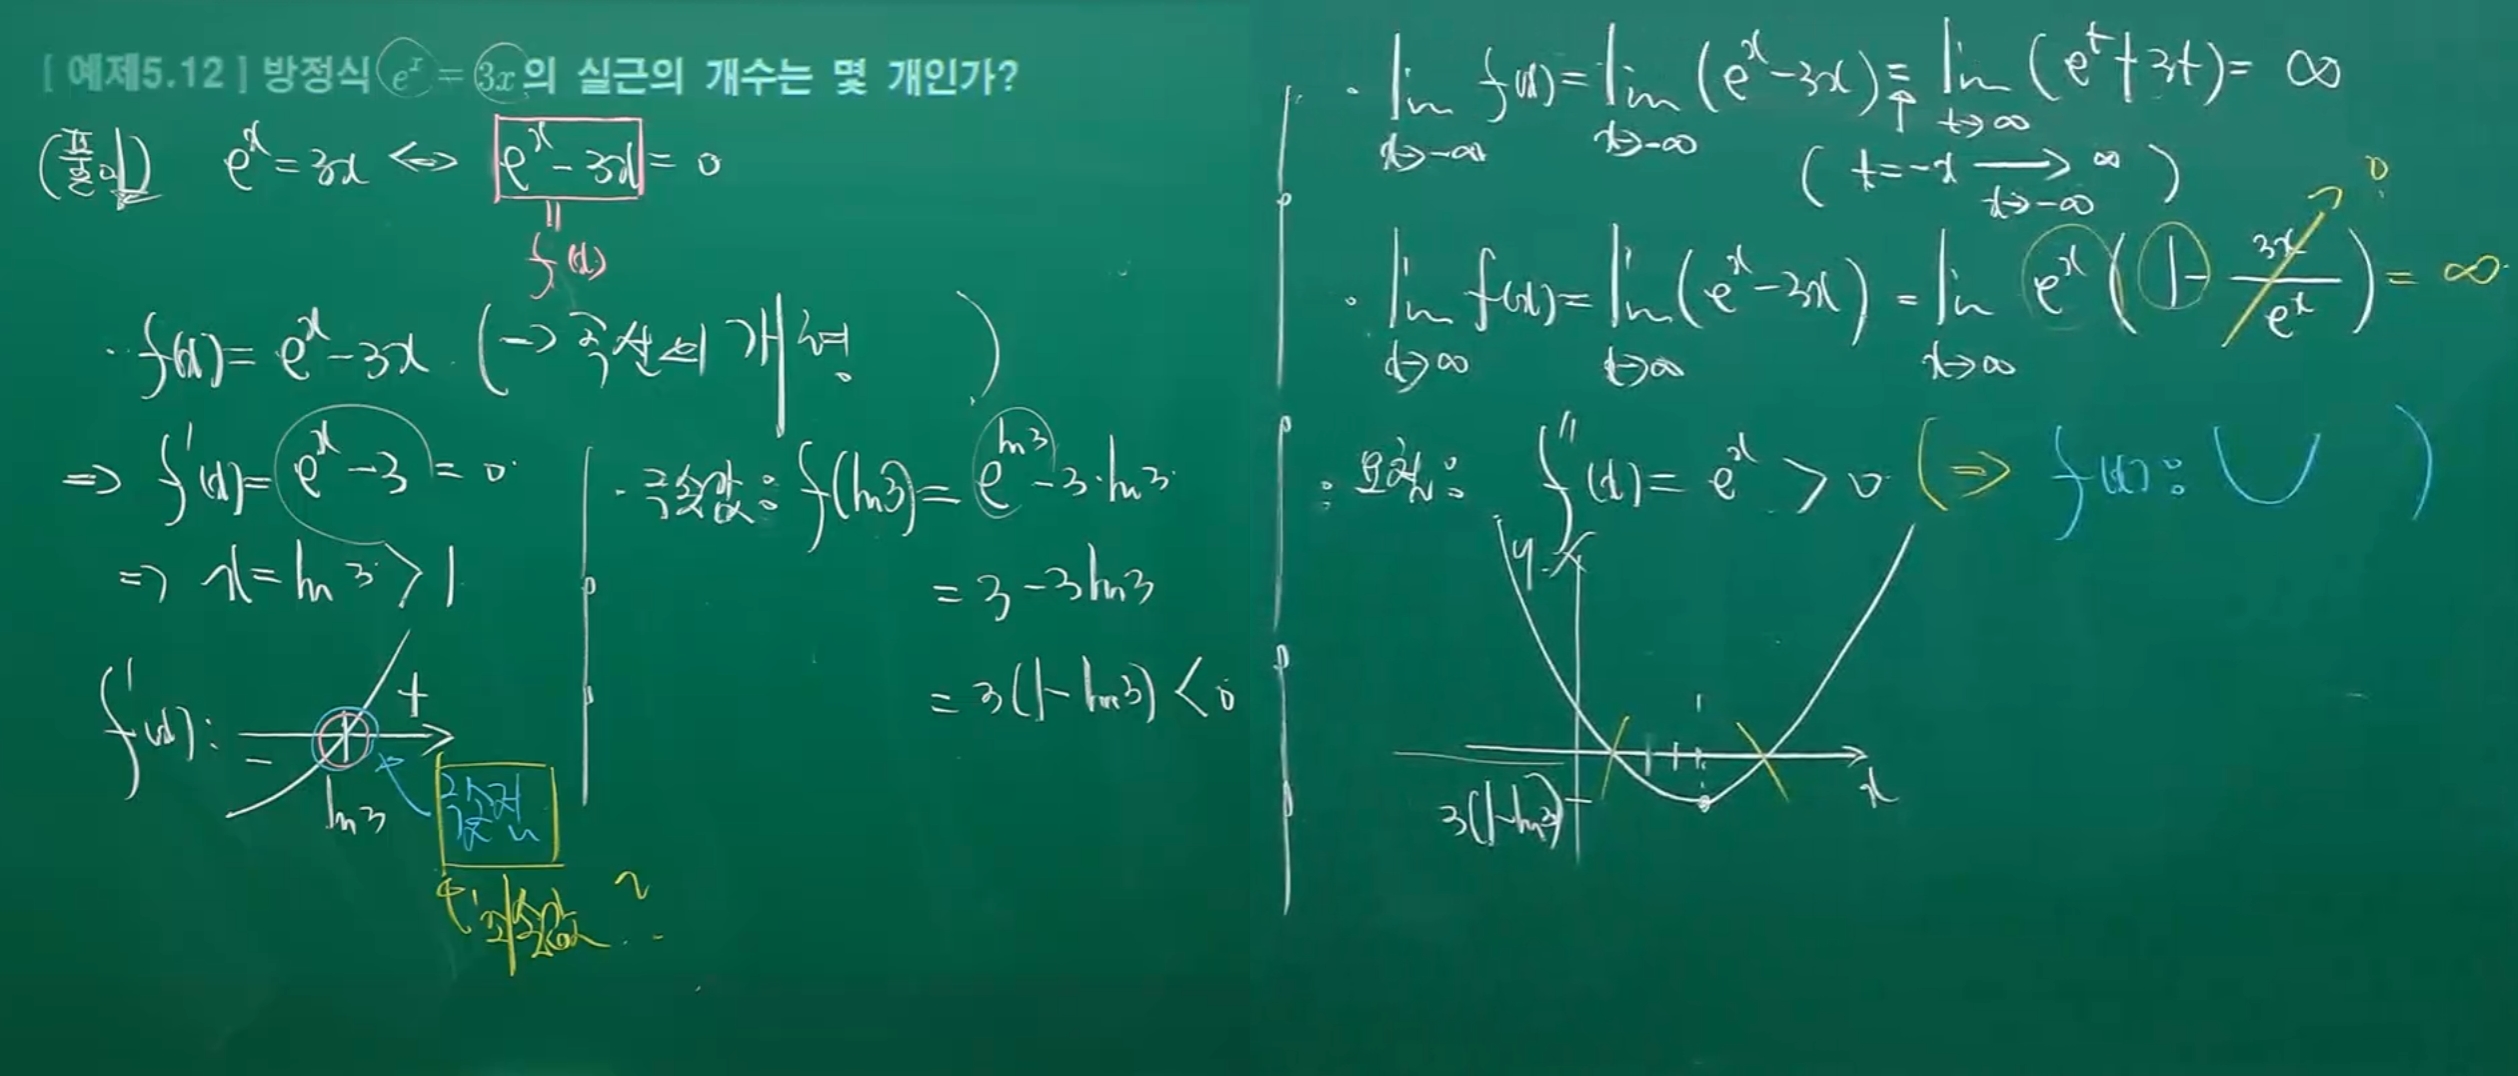 [ 예제5.12 ] 방정식 eˣ = 3x의 실근의 개수는 몇 개인가?
(풀이) eˣ = 3x ⟺ eˣ - 3x = 0
॥
f(x)
· f(x) = eˣ - 3x. (→ 곡선의 개형 )
⇒ f'(x) = eˣ - 3 = 0
⇒ x = ln 3 > 1
f'(x): - + ln3
극소점
극소값 ?
· 극소값: f(ln3) = e^(ln3) - 3·ln3
= 3 - 3ln3
= 3(1 - ln3) < 0
· lim x→-∞ f(x) = lim x→-∞ (eˣ - 3x) = lim t→∞ (eᵗ + 3t) = ∞
( t = -x → ∞ x→-∞ )
· lim x→∞ f(x) = lim x→∞ (eˣ - 3x) = lim x→∞ eˣ(1 - 3x/eˣ) = ∞
0
: 요철: f''(x) = eˣ > 0 (⇒ f(x): ∪ )
y
x
3(1-ln3)